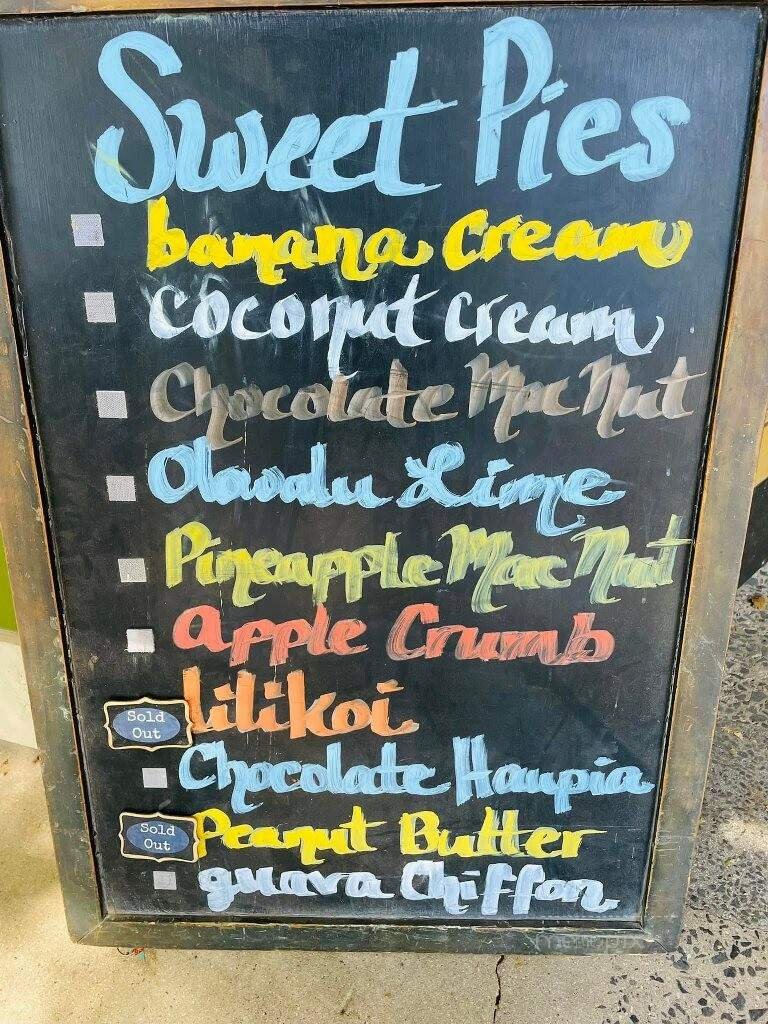 Sweet Pies
banana Cream
Coconut Cream
Chocolate Mac Nut
Olowalu Lime
Pineapple Mac Nut
apple Crumb
Sold Out lilikoi
Chocolate Haupia
Sold Out Peanut Butter
guava Chiffon
menupix